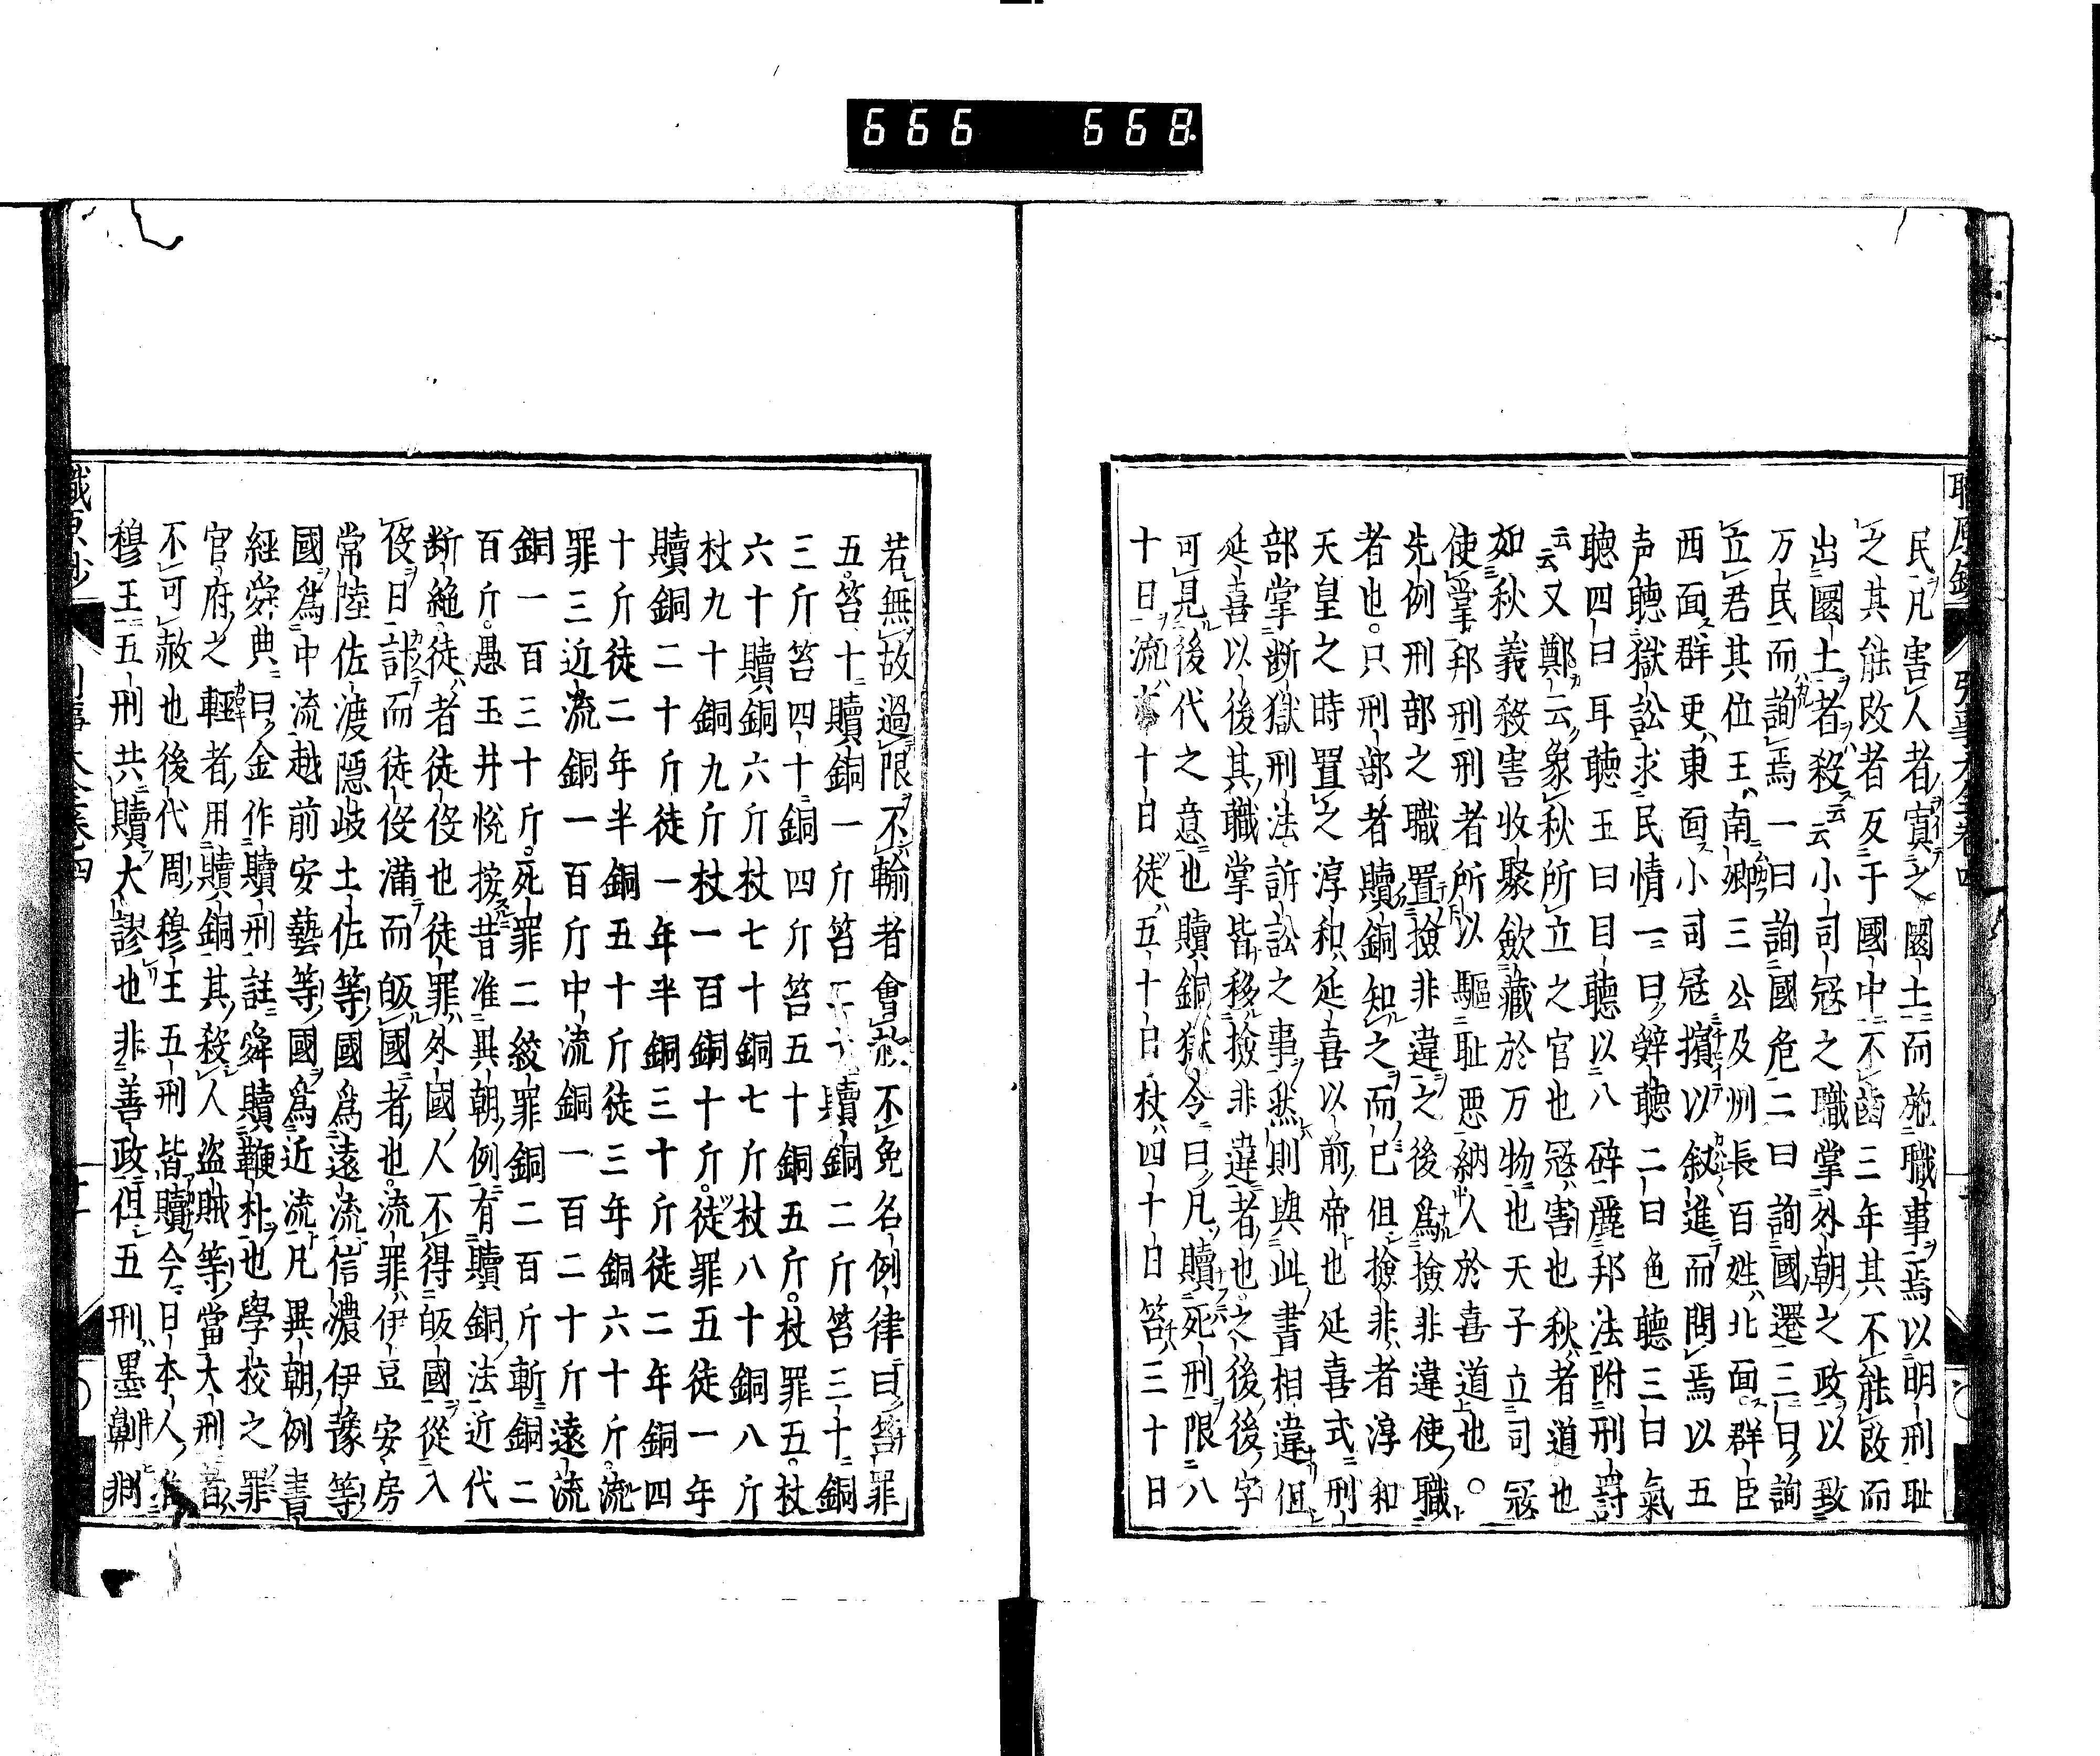 666 668
民凡害人者寘之圜土而施職事焉以明刑耻
之其能改者反于國中不齒三年其不能改而
出圜土者殺云云小司寇之職掌外朝之政以致
万民而詢焉一曰詢國危二曰詢國遷三曰詢
立君其位王南郷三公及州長百姓北面群臣
西面群吏東面小司寇擯以叙進而問焉以五
声聴獄訟求民情一曰辤聴二曰色聴三曰氣
聴四曰耳聴五曰目聴以八辟麗邦法附刑罰
云云又鄭云象秋所立之官也寇害也秋者道也
如秋義殺害收聚斂藏於万物也天子立司寇
使掌邦刑刑者所以驅耻悪納人於善道也
先例刑部之職置撿非違之後爲撿非違使職
者也只刑部者贖銅知之而已但撿非者淳和
天皇之時置之淳和延喜以前帝也延喜式刑
部掌断獄刑法訴訟之事然則與此書相違但
延喜以後其職掌皆移撿非違者也之後後字
可見後代之意也贖銅獄令曰凡贖死刑限八
十日流六十日徒五十日杖四十日笞三十日
若無故過限不輸者會赦不免名例律曰笞罪
五笞十贖銅一斤笞二十贖銅二斤笞三十銅
三斤笞四十銅四斤笞五十銅五斤杖罪五杖
六十贖銅六斤杖七十銅七斤杖八十銅八斤
杖九十銅九斤杖一百銅十斤徒罪五徒一年
贖銅二十斤徒一年半銅三十斤徒二年銅四
十斤徒二年半銅五十斤徒三年銅六十斤流
罪三近流銅一百斤中流銅一百二十斤遠流
銅一百三十斤死罪二絞罪銅二百斤斬銅二
百斤愚玉井悦按昔准異朝例有贖銅法近代
断絶徒者徒役也徒罪外國人不得皈國從入
役日計而徒役満而皈國者也流罪伊豆安房
常陸佐渡隠岐土佐等國爲遠流信濃伊豫等
國爲中流越前安藝等國爲近流凡異朝例書
經舜典曰金作贖刑註舜贖鞭朴也學校之罪
官府之輕者用贖銅其殺人盗賊等當大刑者
不可赦也後代周穆王五刑皆贖今日本人
穆王五刑共贖大謬也非善政但五刑墨劓剕